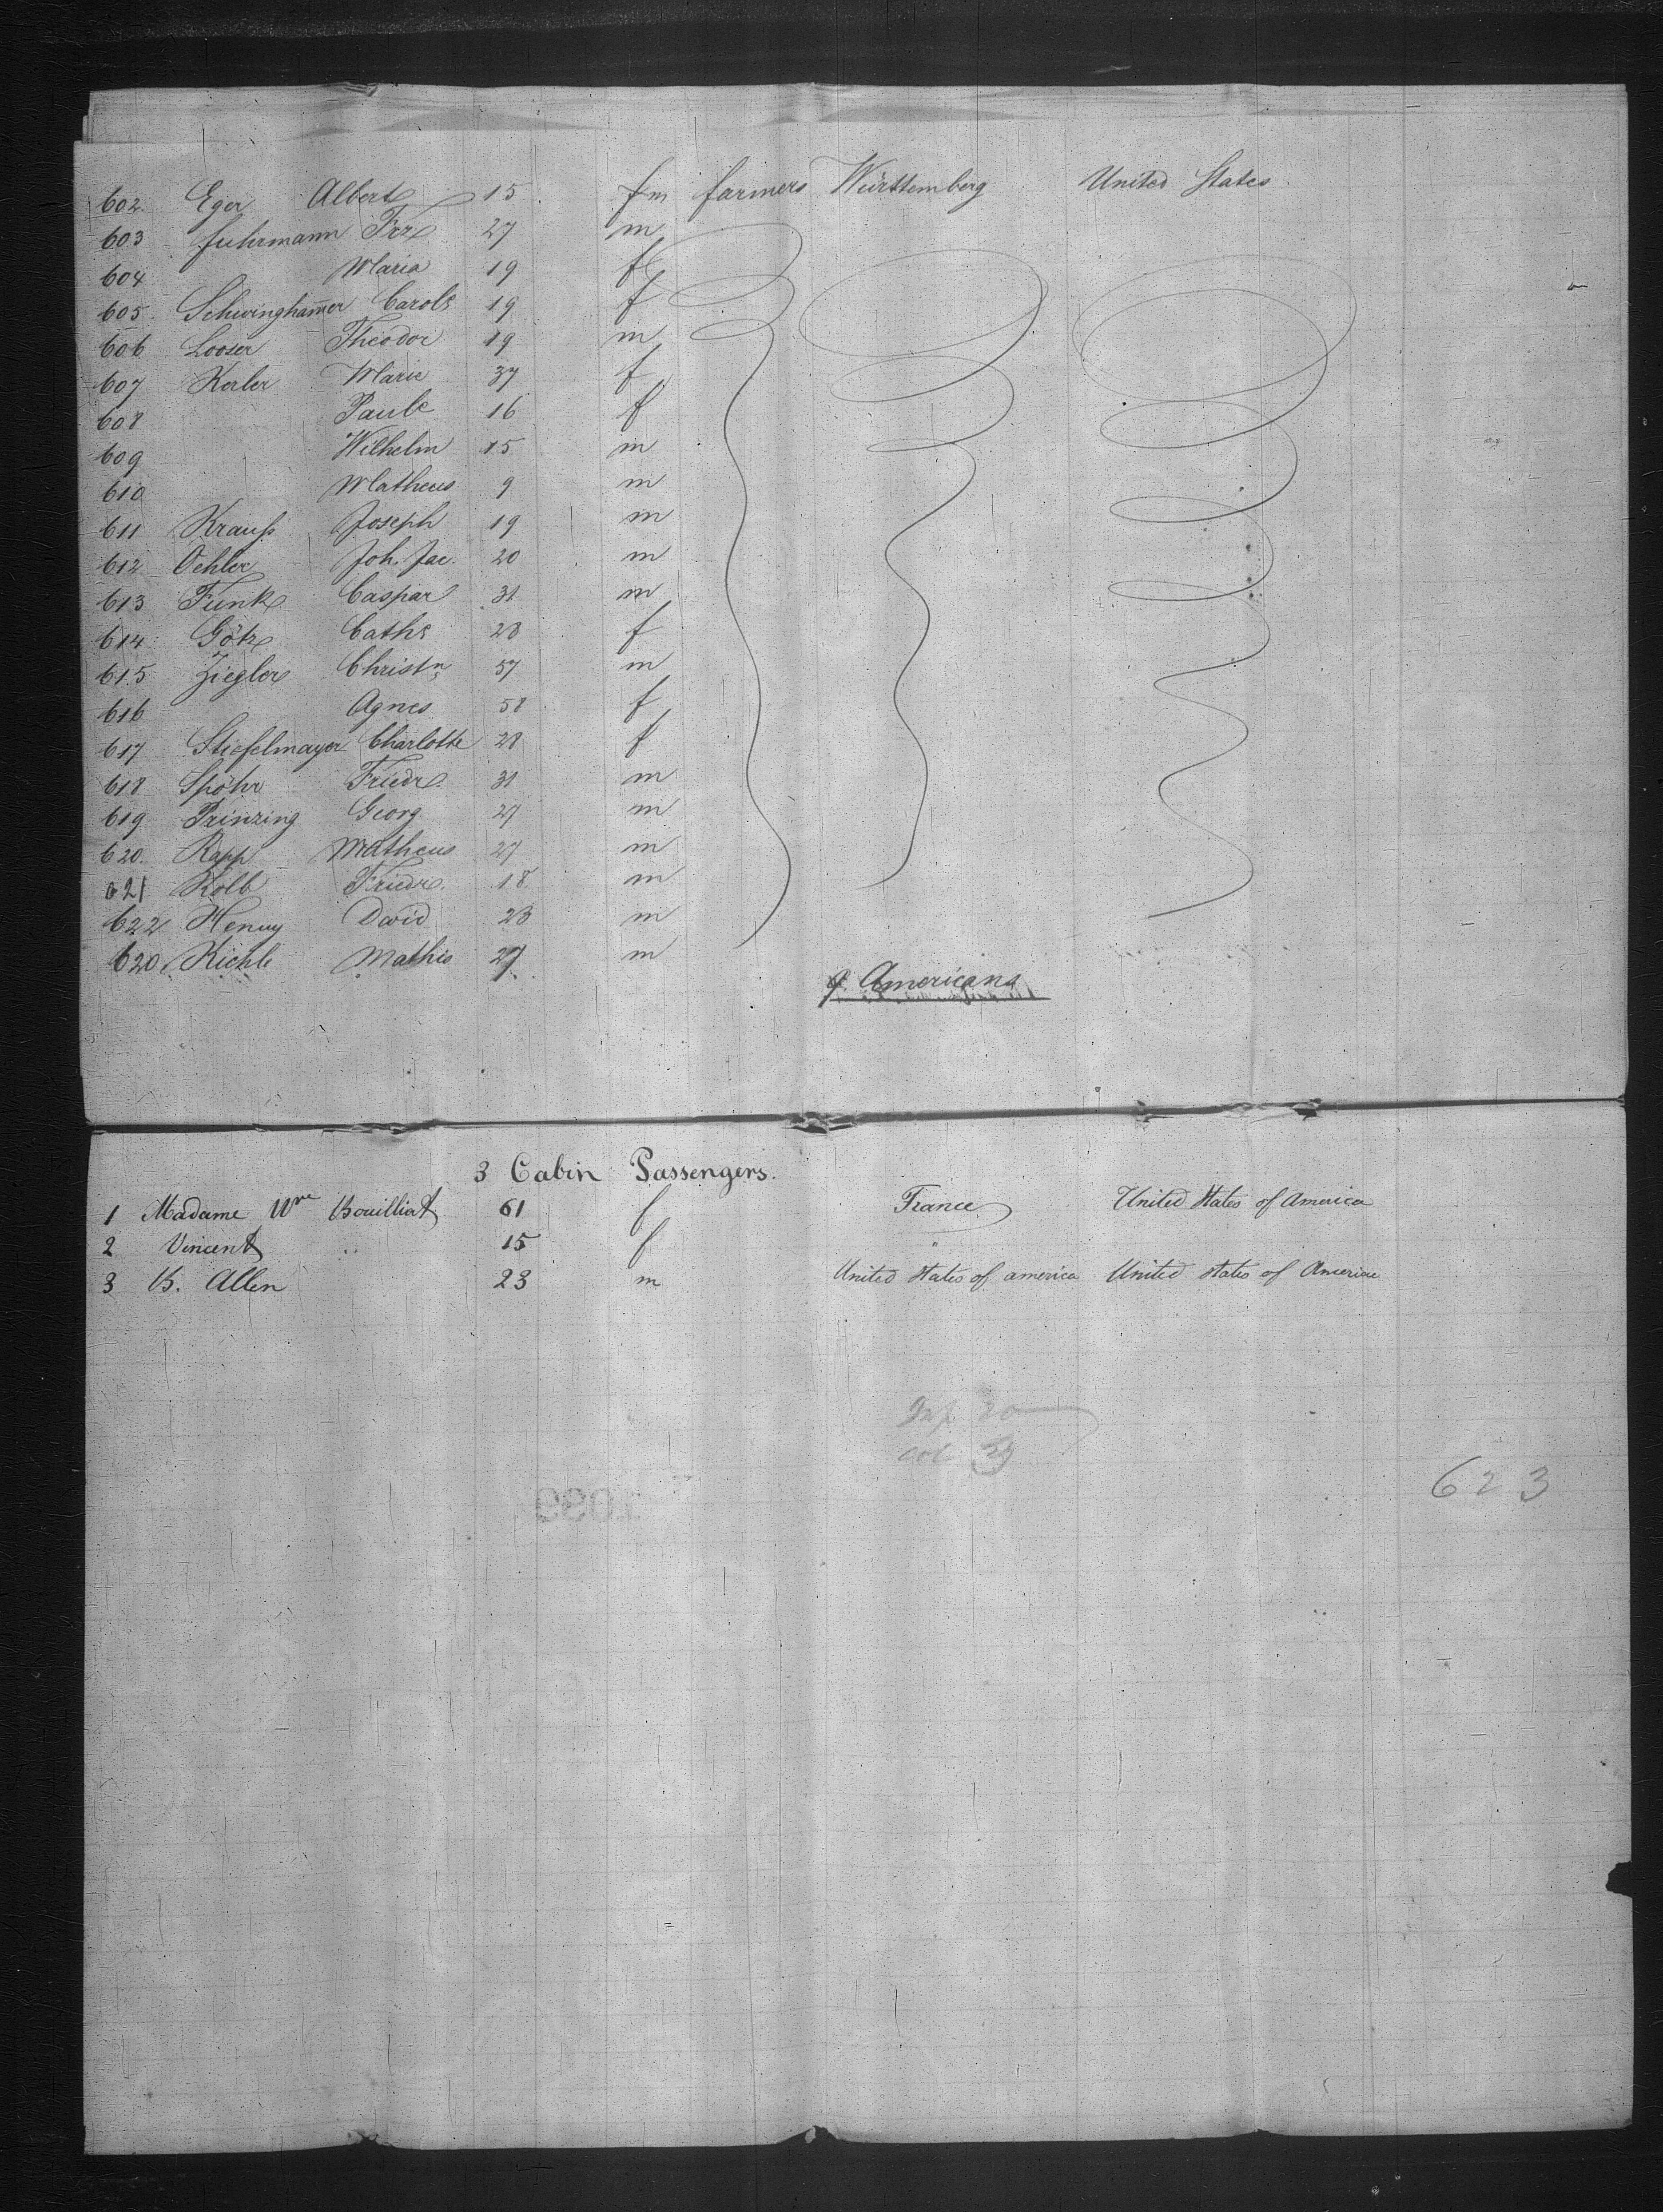 602 Eger Albert 15 fm farmers Württemberg United States
603 Fuhrmann Frz 27 m
604 Maria 19 f
605 Schwingham̄er Carole 19 f
606 Looser Theodor 19 m
607 Kerler Marie 37 f
608 Paule 16 f
609 Wilhelm 15 m
610 Matheus 9 m
611 Krauſs Joseph 19 m
612 Oehler Joh. Jac. 20 m
613 Funk Caspar 31 m
614 Götz Cathe 28 f
615 Ziegler Christn 57 m
616 Agnes 58 f
617 Stiefelmayer Charlotte 28 f
618 Spöhr Friedr. 31 m
619 Prinzing Georg 27 m
620. Rapp Matheus 27 m
621 Kolb Friedr. 18 m
622 Henny David 28 m
620 Kichle Mathis 27 m
9. Americans
3 Cabin Passengers.
1 Madame Wve Bouilliat 61 f France United States of America
2 Vincent " 15 f "
3 B. Allen 23 m United States of america United States of America
Inf 20
623